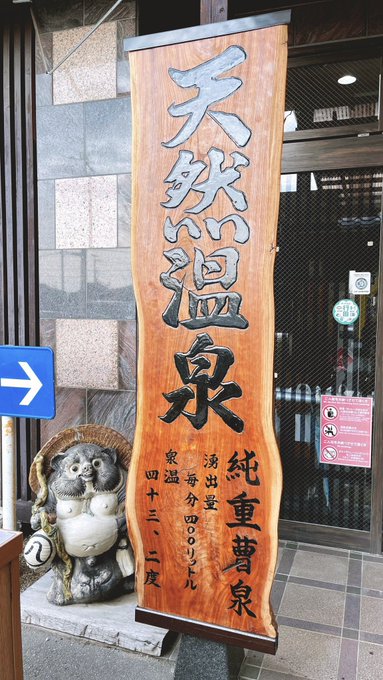 天然温泉
純重曹泉
湧出量
毎分 四〇〇リットル
泉温
四十三、二度
八